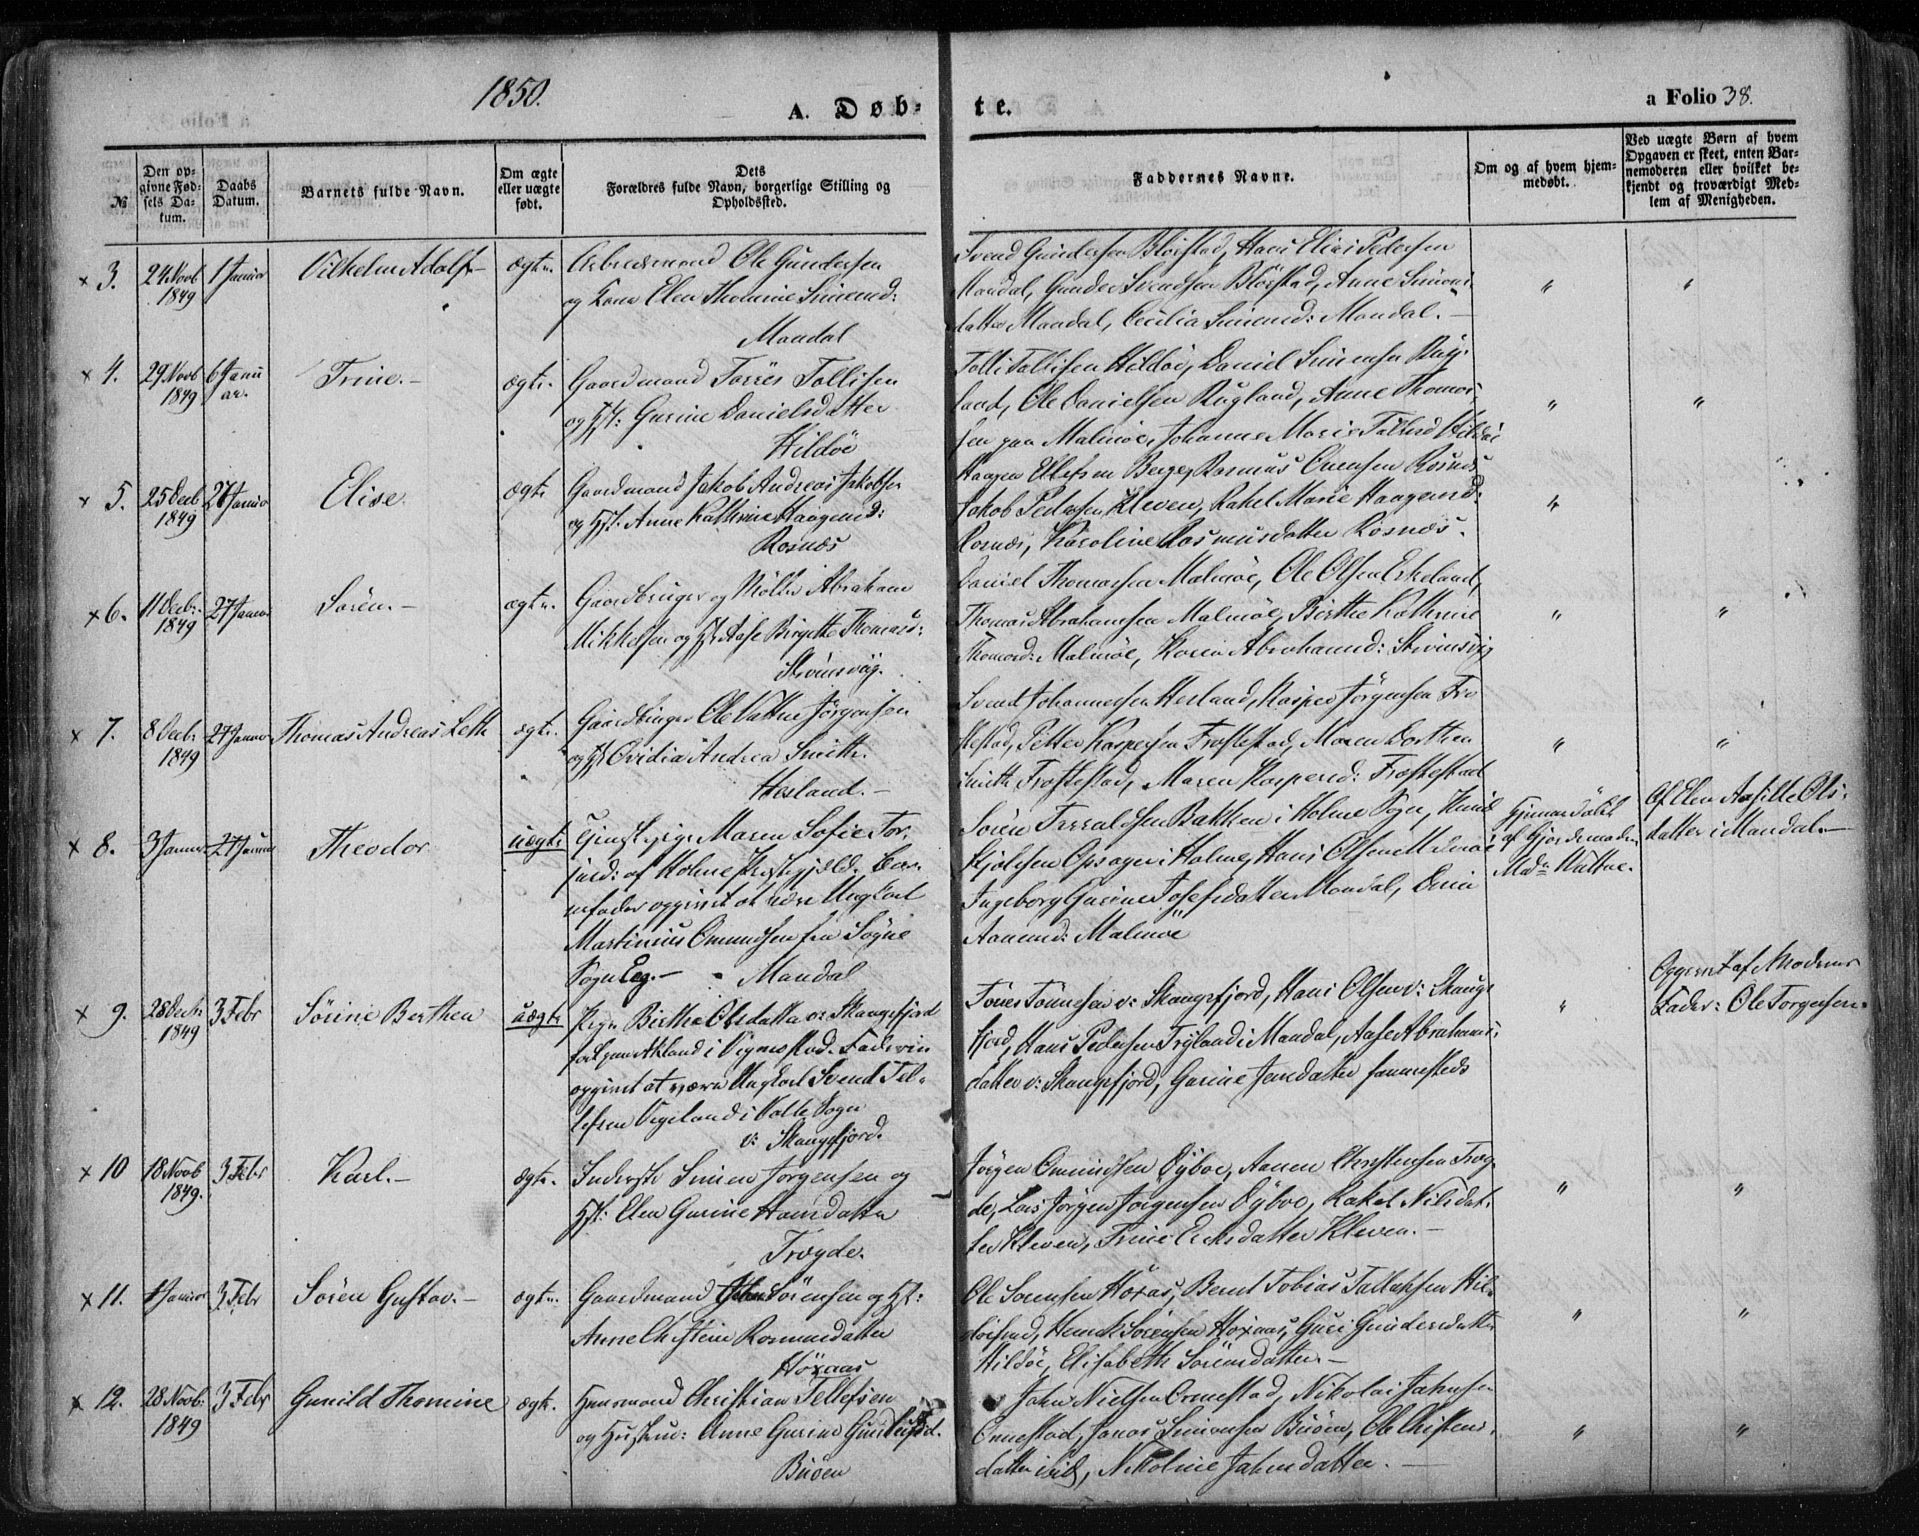 1850.
A. Døb-
te.
a Folio 38.
№
Den op-
givne Fød-
sels Da-
tum.
Daabs
Datum.
Barnets fulde Navn.
Om ægte
eller uægte
født.
Dets
Forældres fulde Navn, borgerlige Stilling og
Opholdssted.
Faddernes Navne.
Om og af hvem hjem-
medøbt.
Ved uægte Børn af hvem
Opgaven er skeet, enten Bar-
nemoderen eller hvilket be-
kjendt og troværdigt Med-
lem af Menigheden.
× 3.
24 Novb
1849
1 Januar
Vilhelm Adolf
ægte.
Arbeidsmand Ole Gundersen
og Kone Elen Thomine Simensd:
Mandal
Svend Gundersen Blørstad, Hans Elias Pedersen
Mandal, Gunder Svendsen Blørstad, Anne Simons-
datter Mandal, Cecilia Simensd: Mandal.
× 4.
29 Novb
1849
6 Janu
ar.
Trine.
ægte.
Gaardmand Torres Tollisen
og Hst: Gurine Danielsdatter
Hildøe
Tolli Tollisen Hildøe, Daniel Simensen Rug-
land, Ole Danielsen Rugland, Anne Thomas
sen paa Malmøe, Johanne Marie
× 5.
25 Decb
1849
27 Januar
Elise.
ægte
Gaardmand Jakob Andreas Jakobsen
og Hst. Anne Kathrine Haagensd:
Rosnæs
Haagen Ellefsen Berge, Rasmus Evensen Rosnæs
Jakob Pedersen Kleven, Rakel Marie Haagensd:
Rosnæs, Karoline Rasmusdatter Rosnæs.
× 6.
11 Decbr.
1849
27 Januar
Søren.
ægte.
Gaardbruger og Møller Abraham
Mikkelsen og Hst Aase Birgitte Thomasd:
Skinsvig.
Daniel Thomassen Malmøe, Ole Olsen Eikeland,
Thomas Abrahamsen Malmøe, Birthe Kathrine
Thomasd: Malmøe, Karen Abrahamsd: Skinsvig
× 7.
8 Decb:
1849
27 Januar
Thomas Andreas Leth
ægte.
Gaardbruger Ole Vattne Jørgensen
og Hst Ovidia Andrea Smith.
Hesland.
Svend Johannessen Hesland, Kasper Jørgensen Fro-
stestad, Petter Kaspersen Frostestad, Maren Dorthea
Smith Frostestad, Maren Kaspersd: Frostestad
× 8.
3 Januar
27 Januar
Theodor
uægte
Tjenestepige Maren Sofie Tor-
juesd: af Holme Præstegjeld. Bar-
nefader opgivet at være Ungkarl
Martinius Omundsen fra Søgne
Sogn Eeg. Mandal
Søren Tarraldsen Bakken i Holme Sogn,
Opsager i Holme, Hans Olsen Malmøe
Ingeborg Gurine Josefsdatter Mandal,
Aanensd: Malmøe
Hjemmedøbt
af Gjordemoder
Mdm Nattve.
Af Elen Aasille Ols-
datter i Mandal.
× 9.
28 Decb:
1849
3 Febr
Sørine Berthea
uægte
Pige Birthe Olsdatter v: Skangsfjord
i Vigmostad. Faderen
opgivet at være Ungkarl Svend Tel-
lefsen Vigeland i Valle Sogn
v: Skangsfjord.
Tønnes Tønnesen v: Skangsfjord, Hans Olsen v: Skangs
fjord, Hans Pedersen Fryland i Mandal, Aase Abrahams-
datter v: Skangsfjord, Gurine Jensdatter sammesteds
Opgivet af Moderens
Fader: Ole Torgersen.
× 10
18 Novb
1849.
3 Febr
Karl.
ægte.
Inderste Simen Jørgensen og
Hst: Elen Gurine Hansdatter
Trøgde.
Jørgen Omundsen Dybøe, Aanen Christensen Trøg-
de, Lars Jørgen Jørgensen Dybøe, Rakel Nilsdat-
ter Kleven, Trine Eriksdatter Kleven.
× 11.
1 Januar
3 Febr
Søren Gustav.
ægte.
Gaardmand Sørensen og Hst:
Anne Christine Rasmusdatter
Høxaas
Ole Sørensen Høxas, Bernt Tobias Tallaksen Hil-
døesund, Henrik Sørensen Høxaas, Guri Gundersdatter
Hildøe, Elisabeth Sørensdatter.
× 12.
28 Novb.
1849
3 Febr
Gunild Thomine
ægte.
Huusmand Christian Tellefsen
og Hustrue: Anne Gurine
Buøen
John Nielsen Ormestad, Nikolai Johnsen
Ormestad, Jonas Simonsen Buøen, Ole Christens-
datter ibid, Nikoline Johnsdatter.